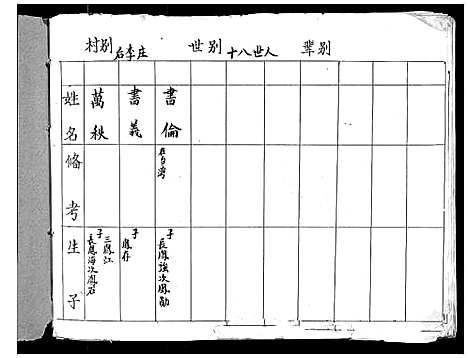 村别 后李庄 世别 十八世人 辈别
姓名 萬秩 書義 書倫
俻考 在台湾
生子
子 長鳳海次鳳石 三鳳江
子 鳳存
子 長鳳強次鳳勛